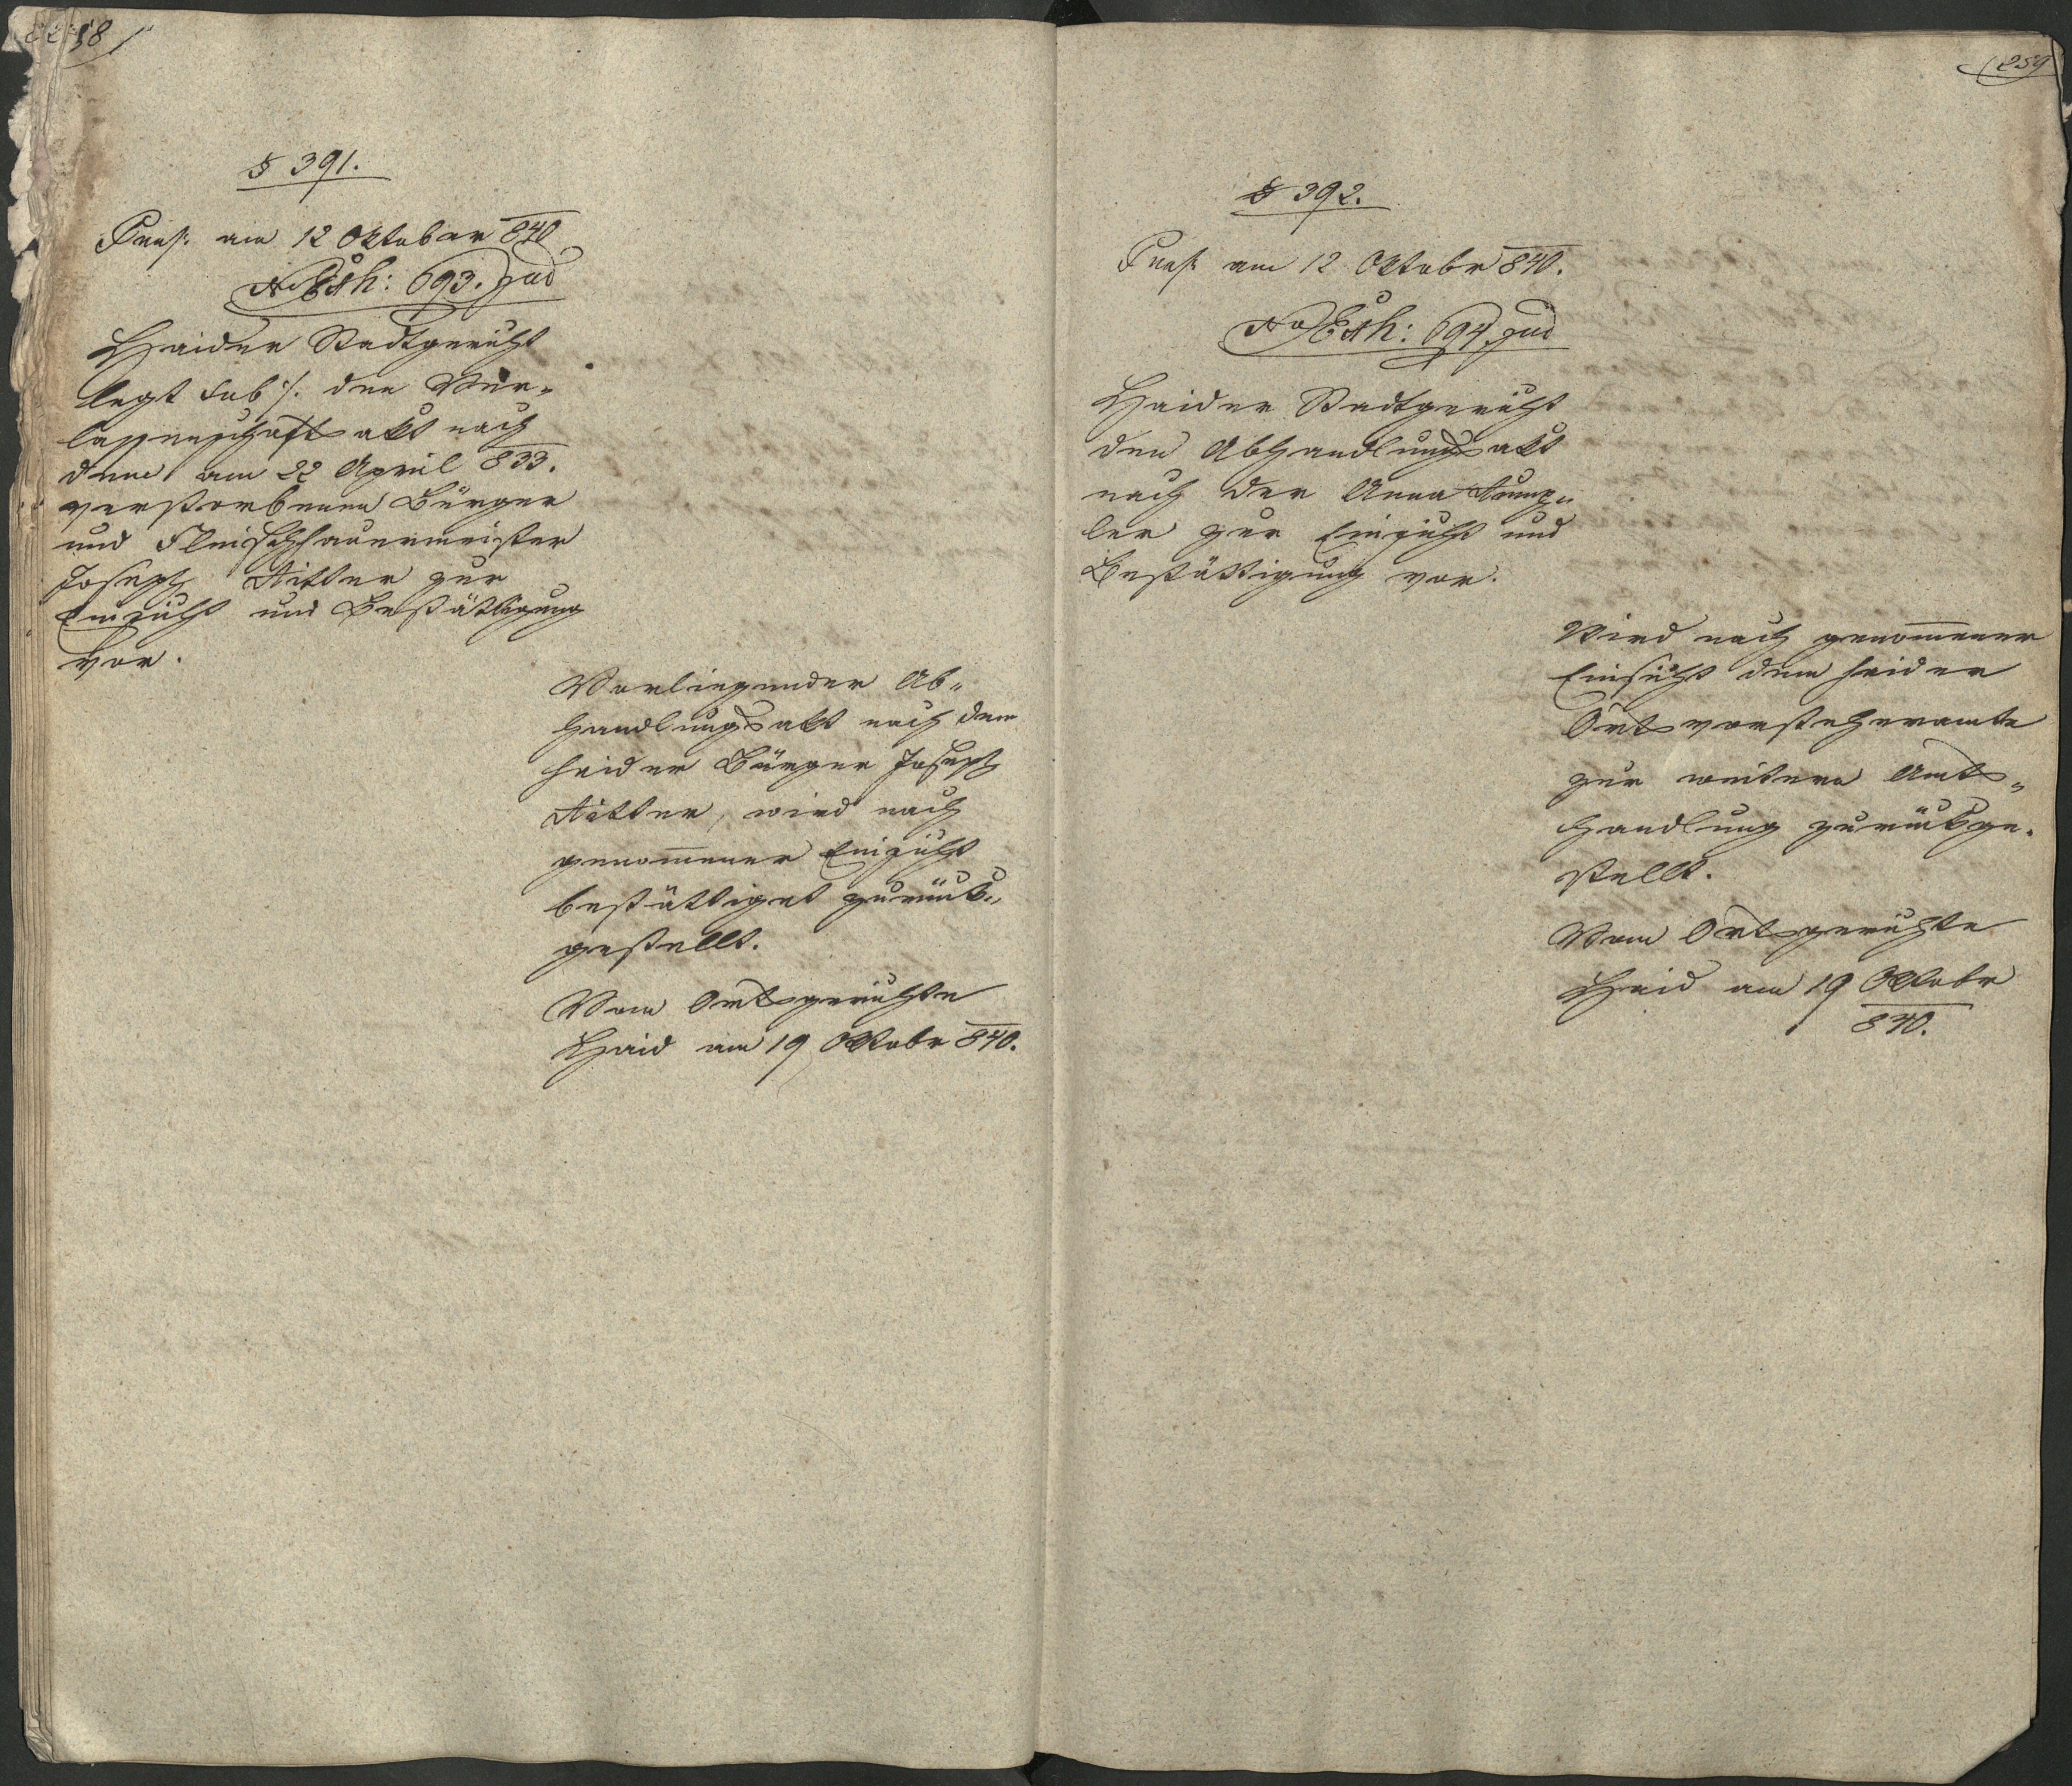 § 391.
Präs. am 12 Oktober 840
No Exh: 693. jud
Haider Stadtgericht
legt sub ./. den Ver-
lassenschaftsakt nach
dem am 22 April 833.
verstorbenen Bürger
und Fleischhauermeister
Joseph Ritter zur
Einsicht und Bestättigung
vor.
Vorliegender Ab-
handlungsakt nach dem
haider Bürger Joseph
Ritter, wird nach
genommener Einsicht
bestättiget zurück-
gestellt.
Vom Ortsgerichte
Haid am 19 Oktobr 840.
259
§ 392.
Präs. am 12 Oktobr 840.
No Exh: 694. jud
Haider Stadtgericht
den Abhandlungsakt
nach der Anna
ler zur Einsicht und
Bestättigung vor.
Wird nach genommener
Einsicht dem haider
Ortsvorsteheramte
zur weitern Amts-
handlung zurückge-
stellt.
Vom Ortsgerichte
Haid am 19 Oktobr
840.